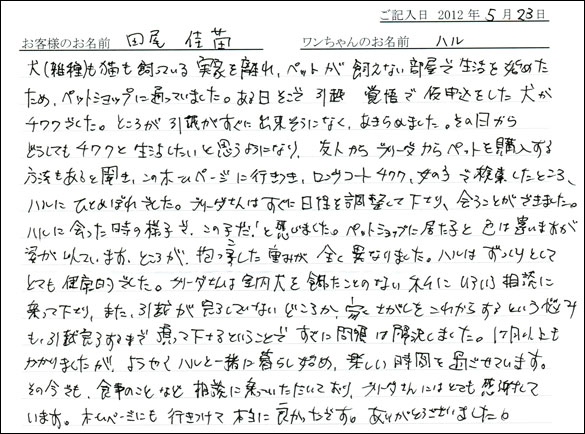 ご記入日 2012年 5月 23日
お客様のお名前 田尾 佳苗 ワンちゃんのお名前 ハル
犬(雑種)も猫も飼っている実家を離れ、ペットが飼えない部屋で生活を始めた
ため、ペットショップに通っていました。ある日そこで引越覚悟で仮申込をした犬が
チワワでした。ところが引越がすぐに出来そうになく、あきらめました。その日から
どうしてもチワワと生活したいと思うようになり、友人からブリーダーからペットを購入する
方法もあると聞き、このホームページに行きつき、ロングコートチワワ、女の子で検索したところ、
ハルにひとめぼれでした。ブリーダーさんはすぐに日程を調整して下さり、会うことができました。
ハルに会った時の様子で、この子だ!と感じました。ペットショップに居た子と色は違いますが
姿が似ています。ところが、抱っこした重みが全く異なりました。ハルはずっしりとして
とても健康的でした。ブリーダーさんは室内犬を飼ったことのない私にいろいろ相談に
乗って下さり、また、引越が完了していないどころか、家さがしをこれからするという悩み
も、引越完了するまで預って下さるということですぐに問題は解決しました。1ヶ月以上も
かかりましたが、ようやくハルと一緒に暮らし始め、楽しい時間を過ごせています。
その今でも、食事のことなど相談に乗っていただいており、ブリーダーさんにはとても感謝して
います。ホームページにも行きつけて本当に良かったです。ありがとうございました。